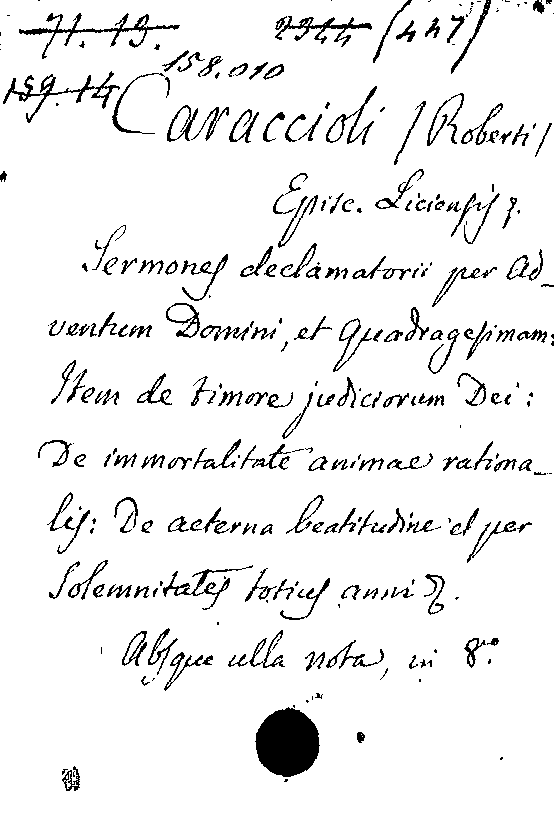 71. 13. 2344 (447)
158.010
159.14
Caraccioli /Roberti/
Episc. Liciensis
Sermones declamatorii per Ad-
ventum Domini, et Quadragesimam:
Item de timore judiciorum Dei:
De immortalitate animae rationa-
lis: De aeterna beatitudine et per
Solemnitates totius anni
Absque ulla nota, in 8.º